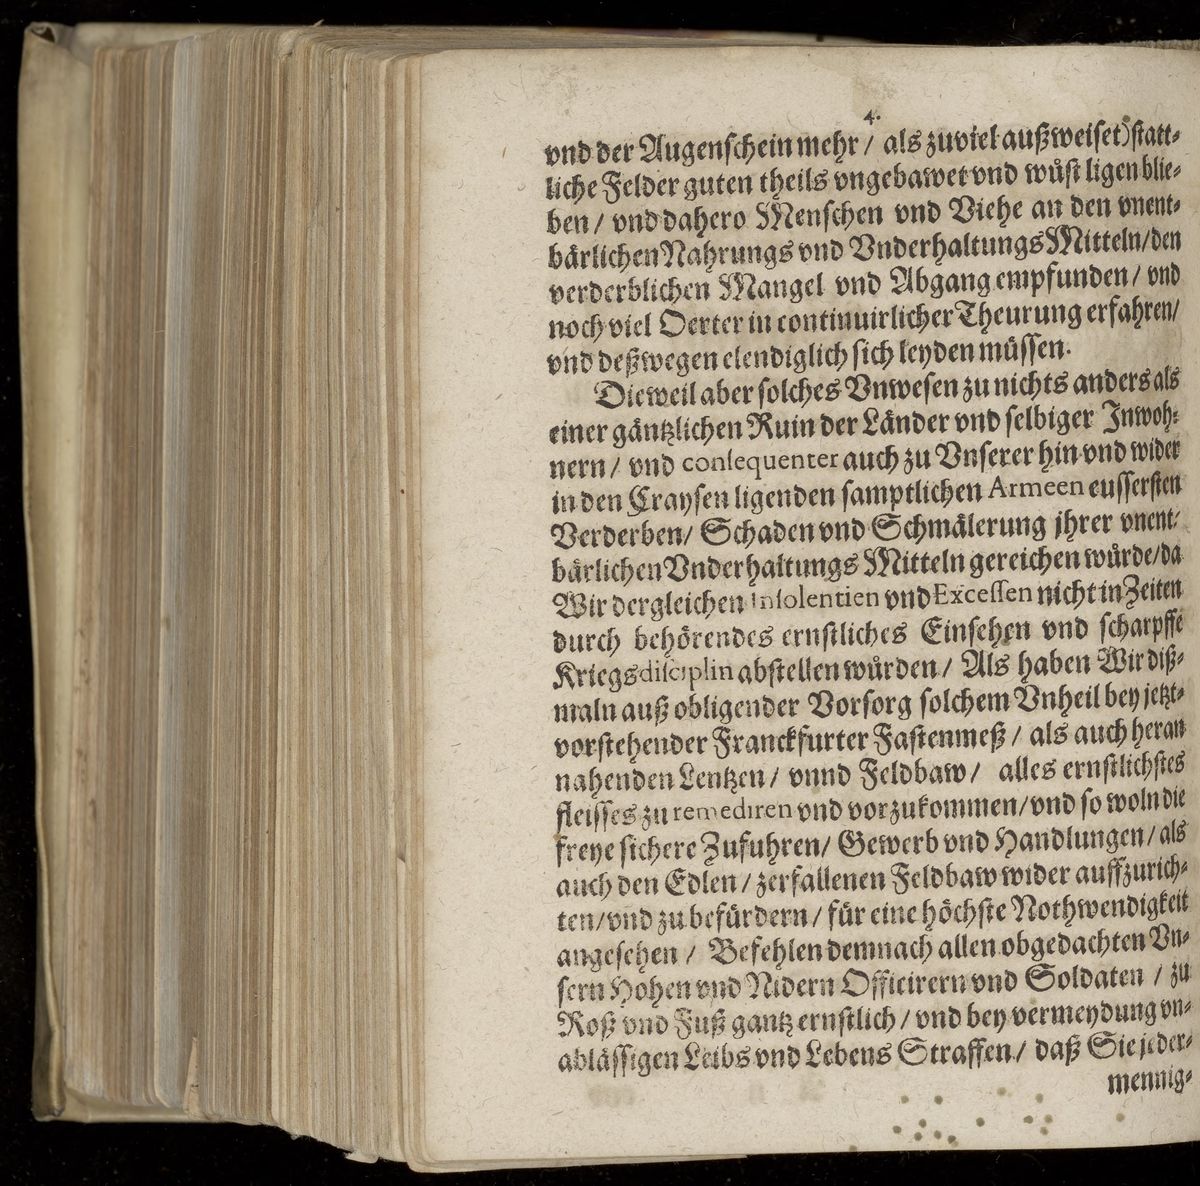 4.
vnd der Augenschein mehr / als zuviel außweiset) statt-
liche Felder guten theils vngebawet vnd wůst ligen blie-
ben / vnd dahero Menschen vnd Viehe an den vnent-
bärlichen Nahrungs vnd Vnderhaltungs Mitteln / den
verderblichen Mangel vnd Abgang empfunden / vnd
noch viel Oerter in continuirlicher Theurung erfahren /
vnd deßwegen elendiglich sich leyden müssen.
Dieweil aber solches Vnwesen zu nichts anders als
einer gäntzlichen Ruin der Länder vnd selbiger Inwoh-
nern / vnd consequenter auch zu Vnserer hin vnd wider
in den Craysen ligenden samptlichen Armeen eussersten
Verderben / Schaden vnd Schmälerung jhrer vnent-
bärlichen Vnderhaltungs Mitteln gereichen wůrde / da
Wir dergleichen Insolentien vnd Excessen nicht in Zeiten
durch behörendes ernstliches Einsehen vnd scharpffe
Kriegsdisciplin abstellen wůrden / Als haben Wir diß-
maln auß obligender Vorsorg solchem Vnheil bey jetzt-
vorstehender Franckfurter Fastenmeß / als auch heran
nahenden Lentzen / vnnd Feldbaw / alles ernstlichstes
fleisses zu remediren vnd vorzukommen / vnd so woln die
freye sichere Zufuhren / Gewerb vnd Handlungen / als
auch den Edlen / zerfallenen Feldbaw wider auffzurich-
ten / vnd zu befürdern / für eine höchste Nothwendigkeit
angesehen / Befehlen demnach allen obgedachten Vn-
sern Hohen vnd Nidern Officirern vnd Soldaten / zu
Roß vnd Fuß gantz ernstlich / vnd bey vermeydung vn-
ablässigen Leibs vnd Lebens Straffen / daß Sie jeder-
mennig-